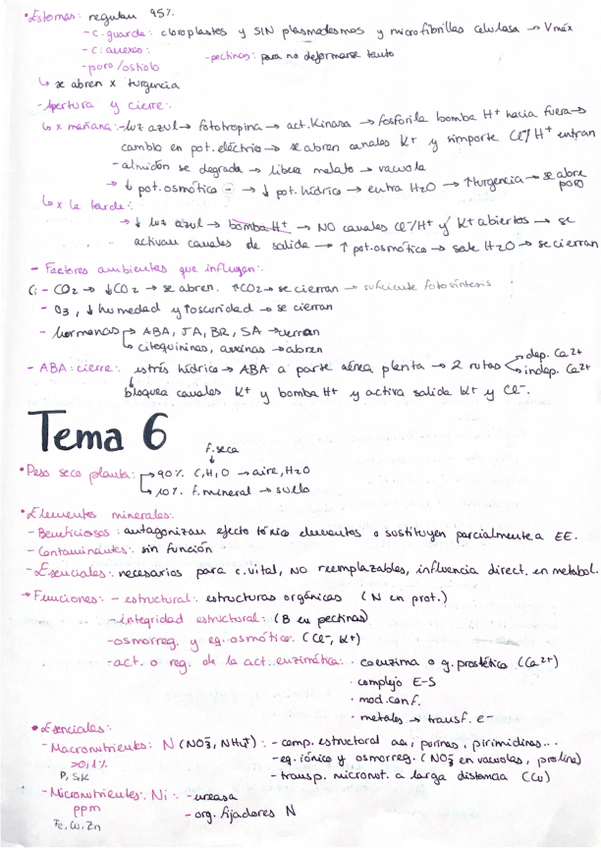 • Estomas: regulan 95%.
- c. guarda: cloroplastos y SIN plasmodesmos y microfibrillas celulosa → Vmáx
- c. anexos:
- pectinas: para no deformarse tanto
- poro/ostiolo
↳ se abren x turgencia
- Apertura y cierre:
↳ x mañana: - luz azul → fototropina → act. kinasa → fosforila bomba H⁺ hacia fuera →
cambio en pot. eléctrico → se abren canales K⁺ y simporte Cl⁻/H⁺ entran
- almidón se degrada → libera malato → vacuola
→ ↓ pot. osmótico ⊖ → ↓ pot. hídrico → entra H2O → ↑turgencia → se abre poro
↳ x la tarde:
→ ↓ luz azul → bomba H⁺ → NO canales Cl⁻/H⁺ y K⁺ abiertos → se
activan canales de salida → ↑ pot. osmótico → sale H2O → se cierran
- Factores ambientes que influyen:
Ci - CO2 → ↓CO2 → se abren. ↑CO2 → se cierran → suficiente fotosíntesis
- O3, ↓ humedad y ↑oscuridad → se cierran
- hormonas → ABA, JA, BR, SA → cierran
↳ citoquininas, auxinas → abren
- ABA: cierre: estrés hídrico → ABA a parte aérea planta → 2 rutas → dep. Ca2+
↳ indep. Ca2+
bloquea canales K⁺ y bomba H⁺ y activa salida K⁺ y Cl⁻.
Tema 6
f. seca
• Peso seco planta: → 90% C, H, O → aire, H2O
↳ 10% f. mineral → suelo
• Elementos minerales:
- Beneficiosos: antagonizan efecto tóxico elementos o sustituyen parcialmente a EE.
- Contaminantes: sin función
- Esenciales: necesarios para c. vital, NO reemplazables, influencia direct. en metabol.
→ Funciones: - estructural: estructuras orgánicas (N en prot.)
- integridad estructural: (B en pectinas)
- osmorreg. y eq. osmótico: (Cl⁻, K⁺)
- act. o reg. de la act. enzimática: · coenzima o g. prostético (Ca2+)
· complejo E-S
· mod. conf.
· metales → transf. e⁻
• Esenciales:
- Macronutrientes: N (NO3⁻, NH4⁺): - comp. estructural aa, purinas, pirimidinas...
>0,1% - eq. iónico y osmorreg. (NO3⁻ en vacuolas, prolina)
P, S, K - transp. micronut. a larga distancia (Cu)
- Micronutrientes: Ni: - ureasa
ppm - org. fijadores N
Fe, Cu, Zn